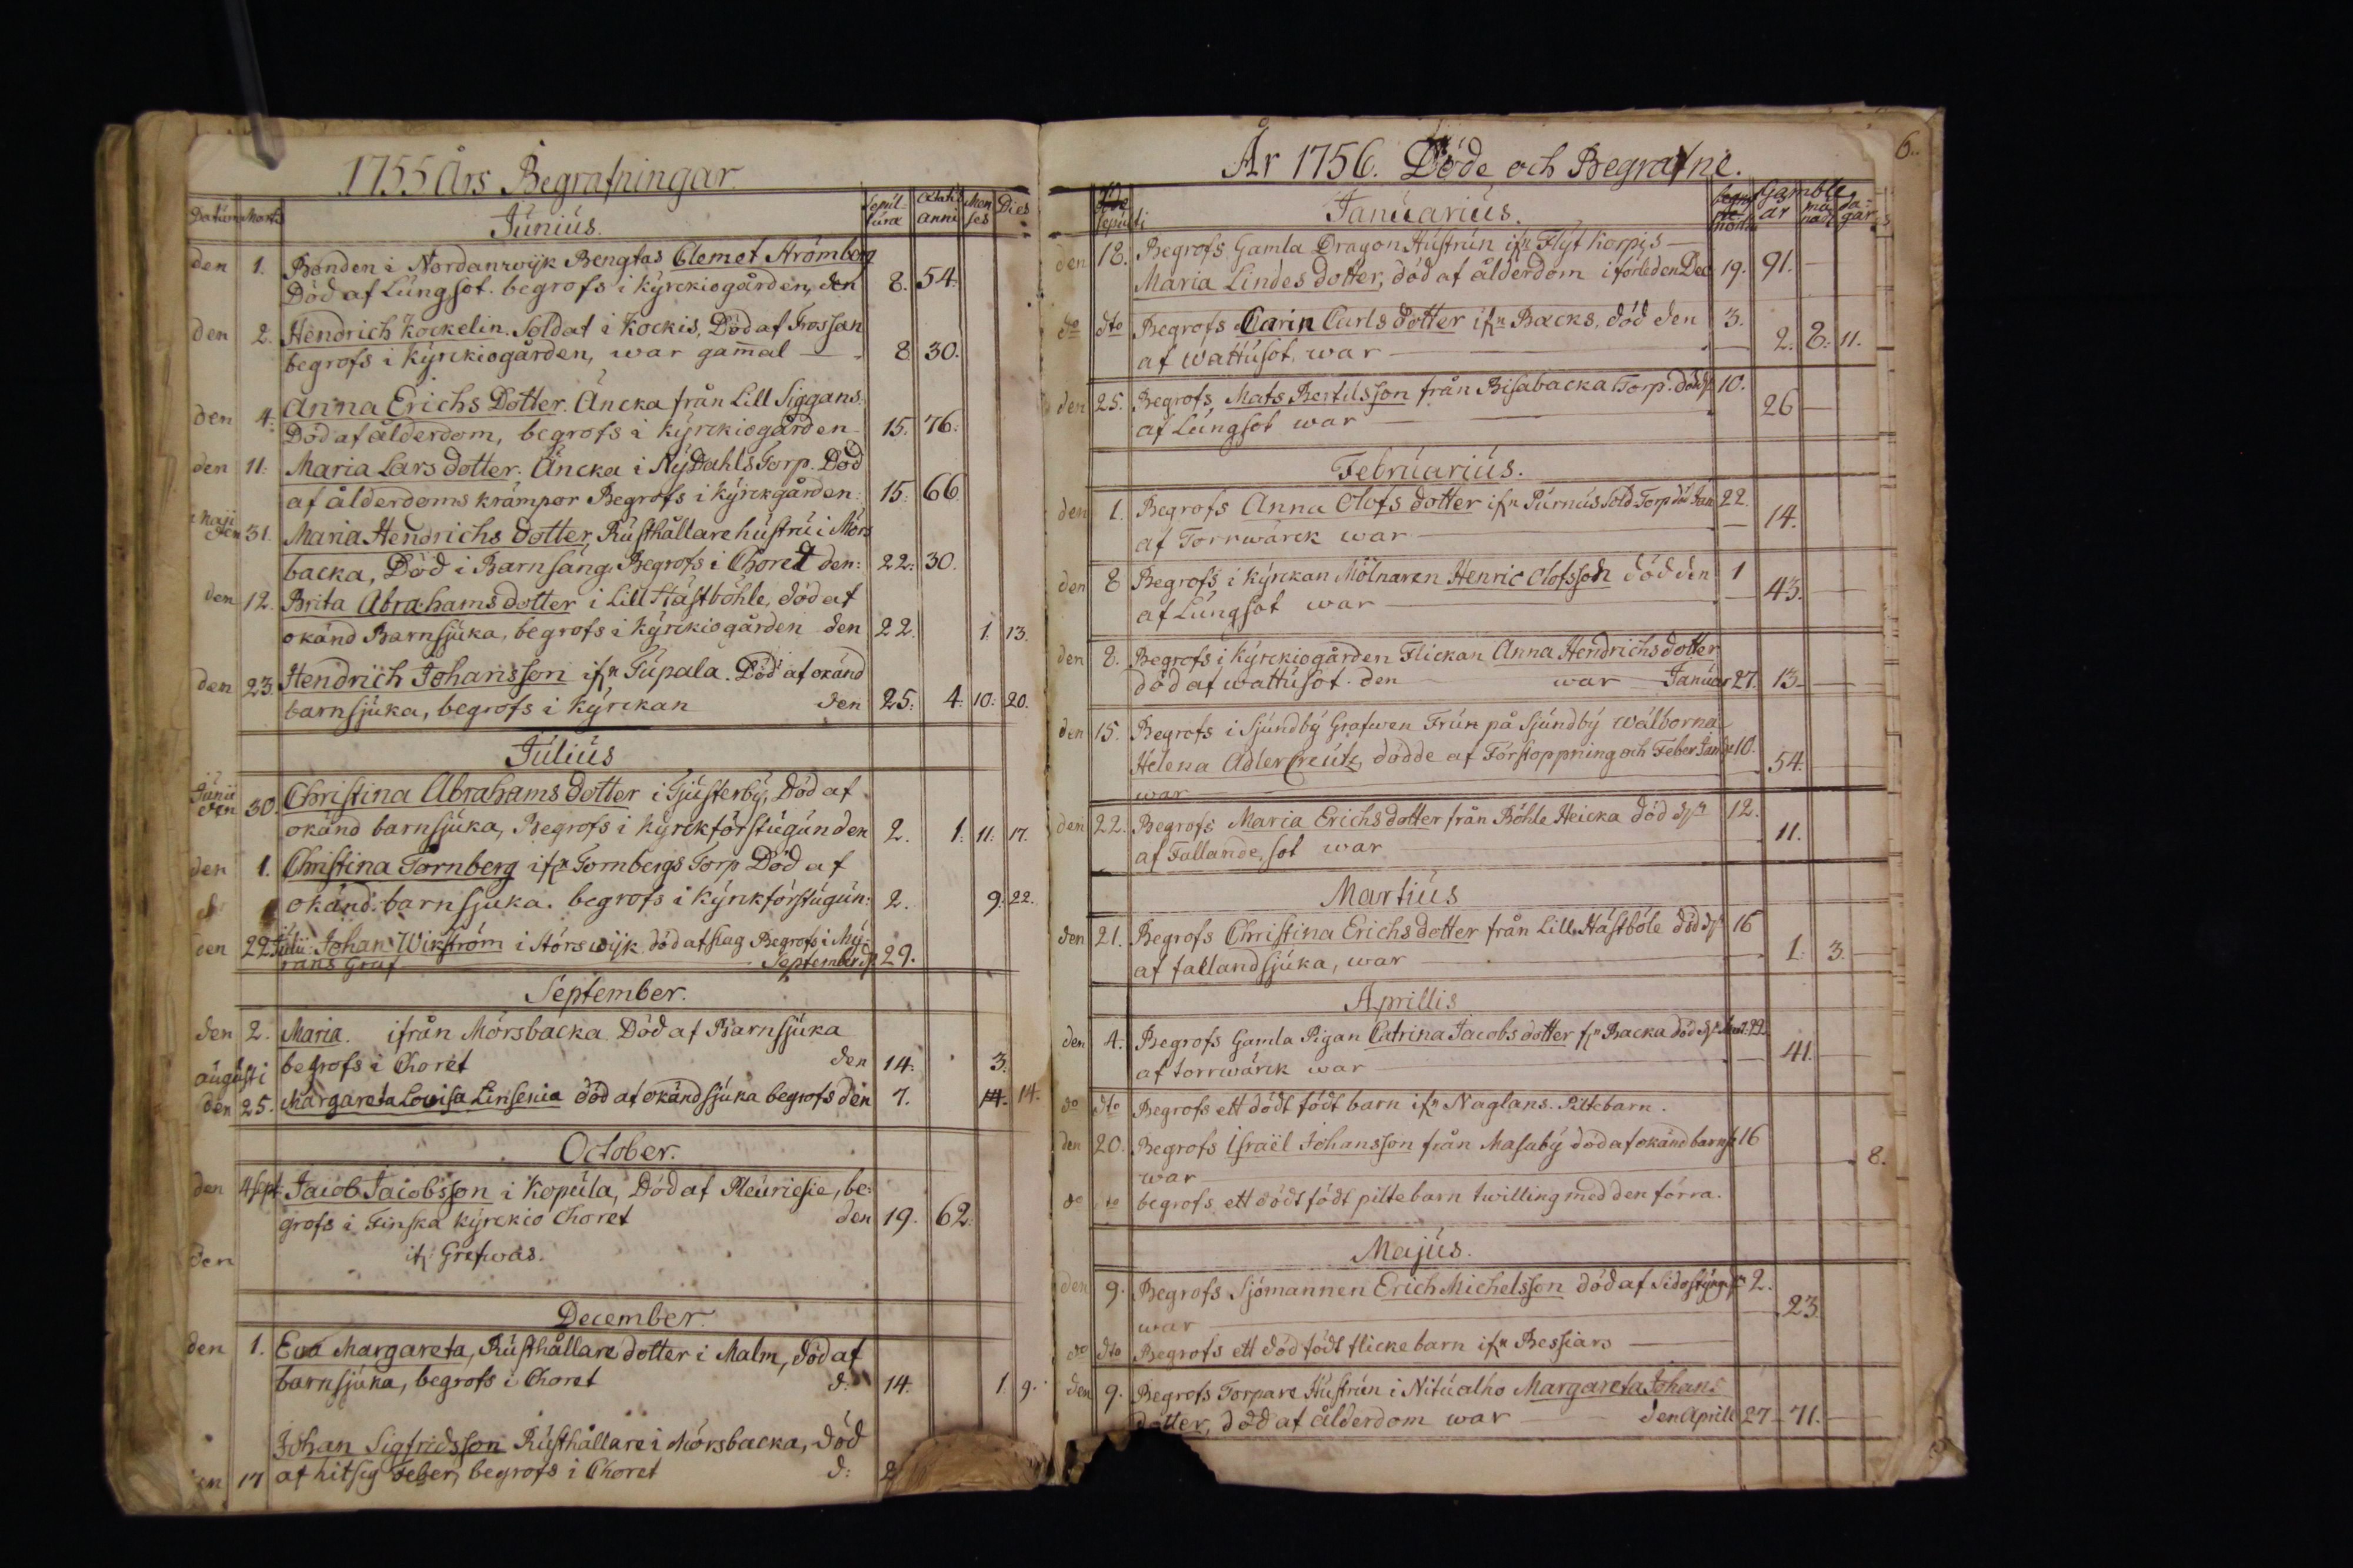 1755 Års Begrafningar.
Datum Mortis Junius. Sepul-turæ Ætatis anni Men ses Dies
den 1. Bonden i Nordanwijk Bengtas Clemet Strömberg
Död af Lungsot. begrofs i kyrckiogården, den 8. 54.
den 2. Hendrich Kockelin. Soldat i Kockis, Död af Frossan
begrofs i kyrckiogården, war gam̄al 8 30.
den 4. Anna Erichs Dotter. Äncka från Lill Siggans.
Död af ålderdom, begrofs i kyrckiogården 15. 76.
den 11. Maria Lars dotter. Äncka i NyDahls Torp. Död
af ålderdoms krämpor Begrofs i kyrckgården: 15: 66
Maji den 31. Maria Hendrichs dotter, Rusthållare hustru i Mörs
backa, Död i Barnsäng. Begrofs i Choret den: 22: 30.
den 12. Brita Abrahams dotter i Lill Hästböhle, död af
okänd Barnsjuka, begrofs i kyrckiogården den 22. 1. 13.
den 23. Hendrich Johansson ifrn Tupala. Död af okänd
barnsjuka, begrofs i kyrckan den 25: 4: 10: 20.
Julius
Junii den 30. Christina Abrahams dotter i Gjusterby, Död af
okänd barnsjuka, Begrofs i kyrckförstugun den 2. 1: 11: 17.
den 1. Christina Törnberg ifrn Tornbergs Torp Död af
okänd barnsjuka. begrofs i kyrckförstugun: 2. 9: 22.
den 22 Julii Johan Wikström i Störswijk död af slag Begrofs i My-
rans Graf September 29.
September.
den 2. Maria. ifrån Mörsbacka Död af Barnsjuka
begrofs i Choret den 14: 3.
augusti
den 25. Margareta Lovisa Linsenia död af okänd sjuka begrofs den 7. 14. 14.
October.
den 4 sept Jacob Jacobsson i Kopula, Död af Pleuriesie, be-
grofs i Finska kyrckio Choret den 19. 62:
den ifr Grefwas.
December.
den 1. Eva Margareta, Rusthållare dotter i Malm, död af
barnsjuka, begrofs i Choret d: 14. 1. 9.
Johan Sigfridsson Rusthållare i Mörsbacka, död
den 17 af hitsig Feber, begrofs i Choret d: 2
6.
År 1756. Döde och Begrafne.
sepulti Januarius. Gamble år må nad da-gar
den 18. Begrofs Gamla Dragon Hustrun ifrn Flyt Karpis
Maria Lindes dotter, död af ålderdom i förleden Dec 19. 91.
do dto Begrofs Carin Carls dotter ifrn Backs, död den 3.
af wattusot, war 2. 8: 11.
den 25. Begrofs Mats Bertilsson från Bisabacka Torp. död 10.
af Lungsot war 26
Februarius.
den 1. Begrofs Anna Olofs dotter ifrn Purnus Sold. Torp död Jan 22.
af Torrwärck war 14.
den 8 Begrofs i kyrckan Mölnaren Henric Olofsson död den 1
af Lungsot war 43.
den 8. Begrofs i kyrckiogården Flickan Anna Hendrichs dotter
död af wattusot. den war Januar 27. 13
den 15. Begrofs i Sjundby Grafwen Frun på Sjundby wälborna
Helena Adlercreutz, dödde af Förstoppning och Feber Jan 10.
war 54.
den 22. Begrofs Maria Erichs dotter från Böhle Heicka död 12.
af Fallande sot war 11.
Martius
den 21. Begrofs Christina Erichs dotter från Lill Hästböle död 16
af falland sjuka, war 1. 3.
Aprillis
den 4. Begrofs Gamla Pigan Catrina Jacobs dotter frn Backa död Mart: 22.
af torrwärck war 41.
do dto Begrofs ett dödt födt barn ifrn Naglans. Piltebarn.
den 20. Begrofs Israël Johansson från Masaby död af okänd barns 16
war 8.
do dto begrofs ett dödt födt piltebarn twilling med den förra.
Majus.
den 9. Begrofs Sjömannen Erich Michelsson död af Sidostyng 2.
war 23
do dto Begrofs ett död födt flickebarn ifrn Bessiars
den 9. Begrofs Torpare Hustrun i Nitualho Margareta Johans
dotter, död af ålderdom war den Aprill 27 71.